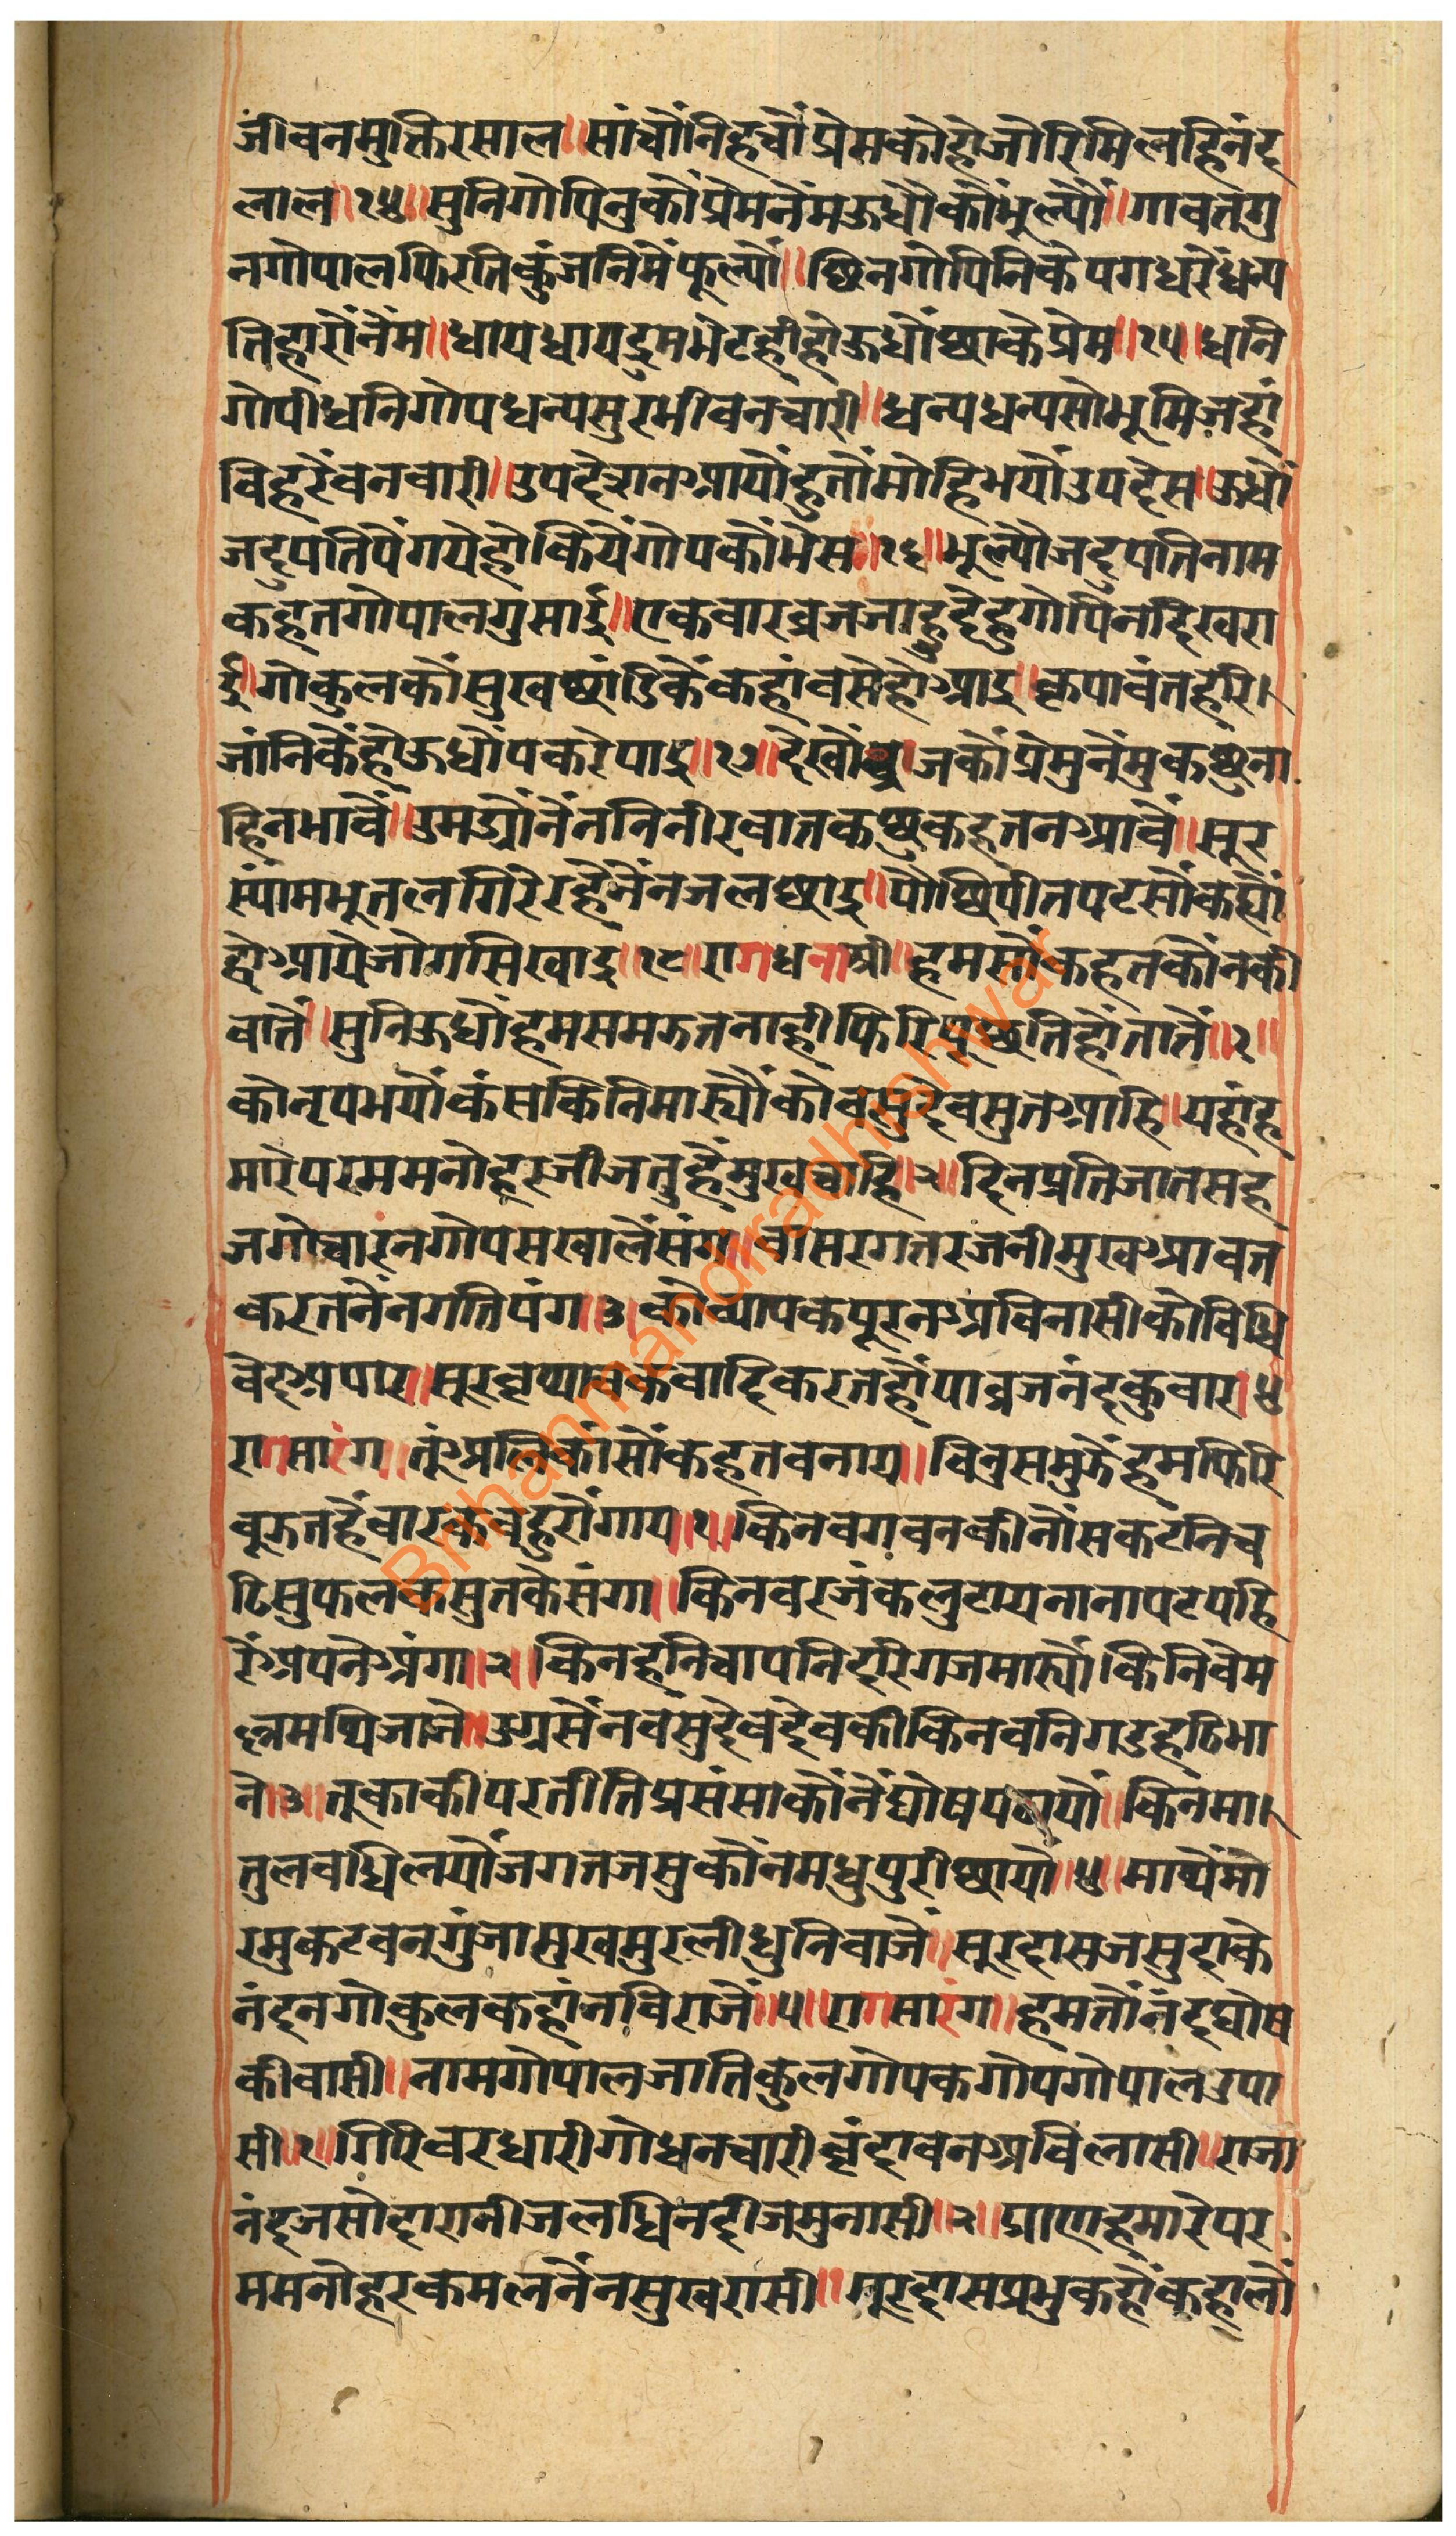 जीवनमुक्तिरसाल॥सांचौंनिहचौंप्रेमकोहोजोरिमिलहिनंद
लाल॥१४॥सुनिगोपिनुकौंप्रेमनेंमऊधौकौंभूल्यौं॥गावतगु
नगोपालफिरतिकुंजनिमेंफूल्यौं॥छिनगोपिनिकेपगधरेंधन्य
तिहारोंनेंम॥धायधायद्रुमभेटहीहोऊधौंछाकेप्रेम॥१५॥धनि
गोपीधनिगोपधन्यसुरभीवनचारी॥धन्यधन्यसोभूमिजहां
विहरेंवनवारी॥उपदेशनआयोंहुतोंमोहिभयोंउपदेस॥ऊधों
जदुपतिपेंगयेहोकियेंगोपकौंभेस॥१६॥भूल्यौजदुपतिनाम
कहतगोपालगुसाईं॥एकवारव्रजजाहुदेहुगोपिनदिखरा
ई॥गोकुलकौंसुखछांडिकैंकहांवसेहोआइ॥कृपावंतहरि।
जांनिकैंहोऊधौंपकरेपाइ॥१७॥देखौंव्रजकौंप्रेमुनेंमुकछुना
हिनभावैं॥उमग्यौंनेंननिनीरवातकछुकहतनआवैं॥सूर
स्यांमभूतलगिरेरहेनेंनजलछाइ॥पौंछिपीतपटसौंकह्यौं
होआयेजोगसिखाइ॥१८॥रागधनाश्री॥हमसौंकहतकौंनकी
वातें॥सुनिऊधौंहमसमझतनाहीफिरिपूछतिहोंतातें॥१॥
कोनृपभयौंकंसकिनिमारयौंकोवसुदेवसुतआहि॥यहांह
मारेपरममनोहरजीजतुहेंमुखचाहि॥२॥दिनप्रतिजातसह
जगोचारनगोपसखालेंसंग॥वासरगतरजनीमुखआवत
करतनेंनगतिपंग॥३॥कोव्यापकपूरनअविनासीकोविधि
वेदअपार॥सूरवृथावकवादिकरतहौंयाव्रजनंदकुवार॥४॥
रागसारंग॥तूंअलिकासौंकहतवनाय॥विनुसमुझेंहमफिरि
वूझतहेंवारकवहुरोंगाय॥१॥किनवगवनकीनौंसकटनिच
ढिसुफलकसुतकेसंगा॥किनवरजंकलुटायनानापटपहि
रेंअपनेअंगा॥२॥किनहनिचापनिदरिगजमारयौंकिनिवेम
ल्लमथिजाने॥उग्रसेंनवसुदेवदेवकीकिनवनिगडहठिभा
ने॥३॥तूकाकीपरतीतिप्रसंसाकौंनेंघोषपठायौं॥किनमा।
तुलवधिलयौंजगतजसुकौंनमधुपुरीछायौ॥४॥माथेंमो
रमुकटवनगुंजामुखमुरलीधुनिवाजैं॥सूरदासजसुदाके
नंदनगोकुलकहांनविराजैं॥५॥रागसारंग॥हमतौंनंदघोष
कीवासी॥नामगोपालजातिकुलगोपकगोपगोपालउपा
सी॥१॥गिरिवरधारीगोधनचारीवृंदावनअविलासी॥राजा
नंदजसोदारानीजलधिनदीजमुनासी॥२॥प्राणहमारेपर
ममनोहरकमलनेंनसुखरासी॥सूरदासप्रभुकहौंकहालौं
Brihanmandiradhishwar